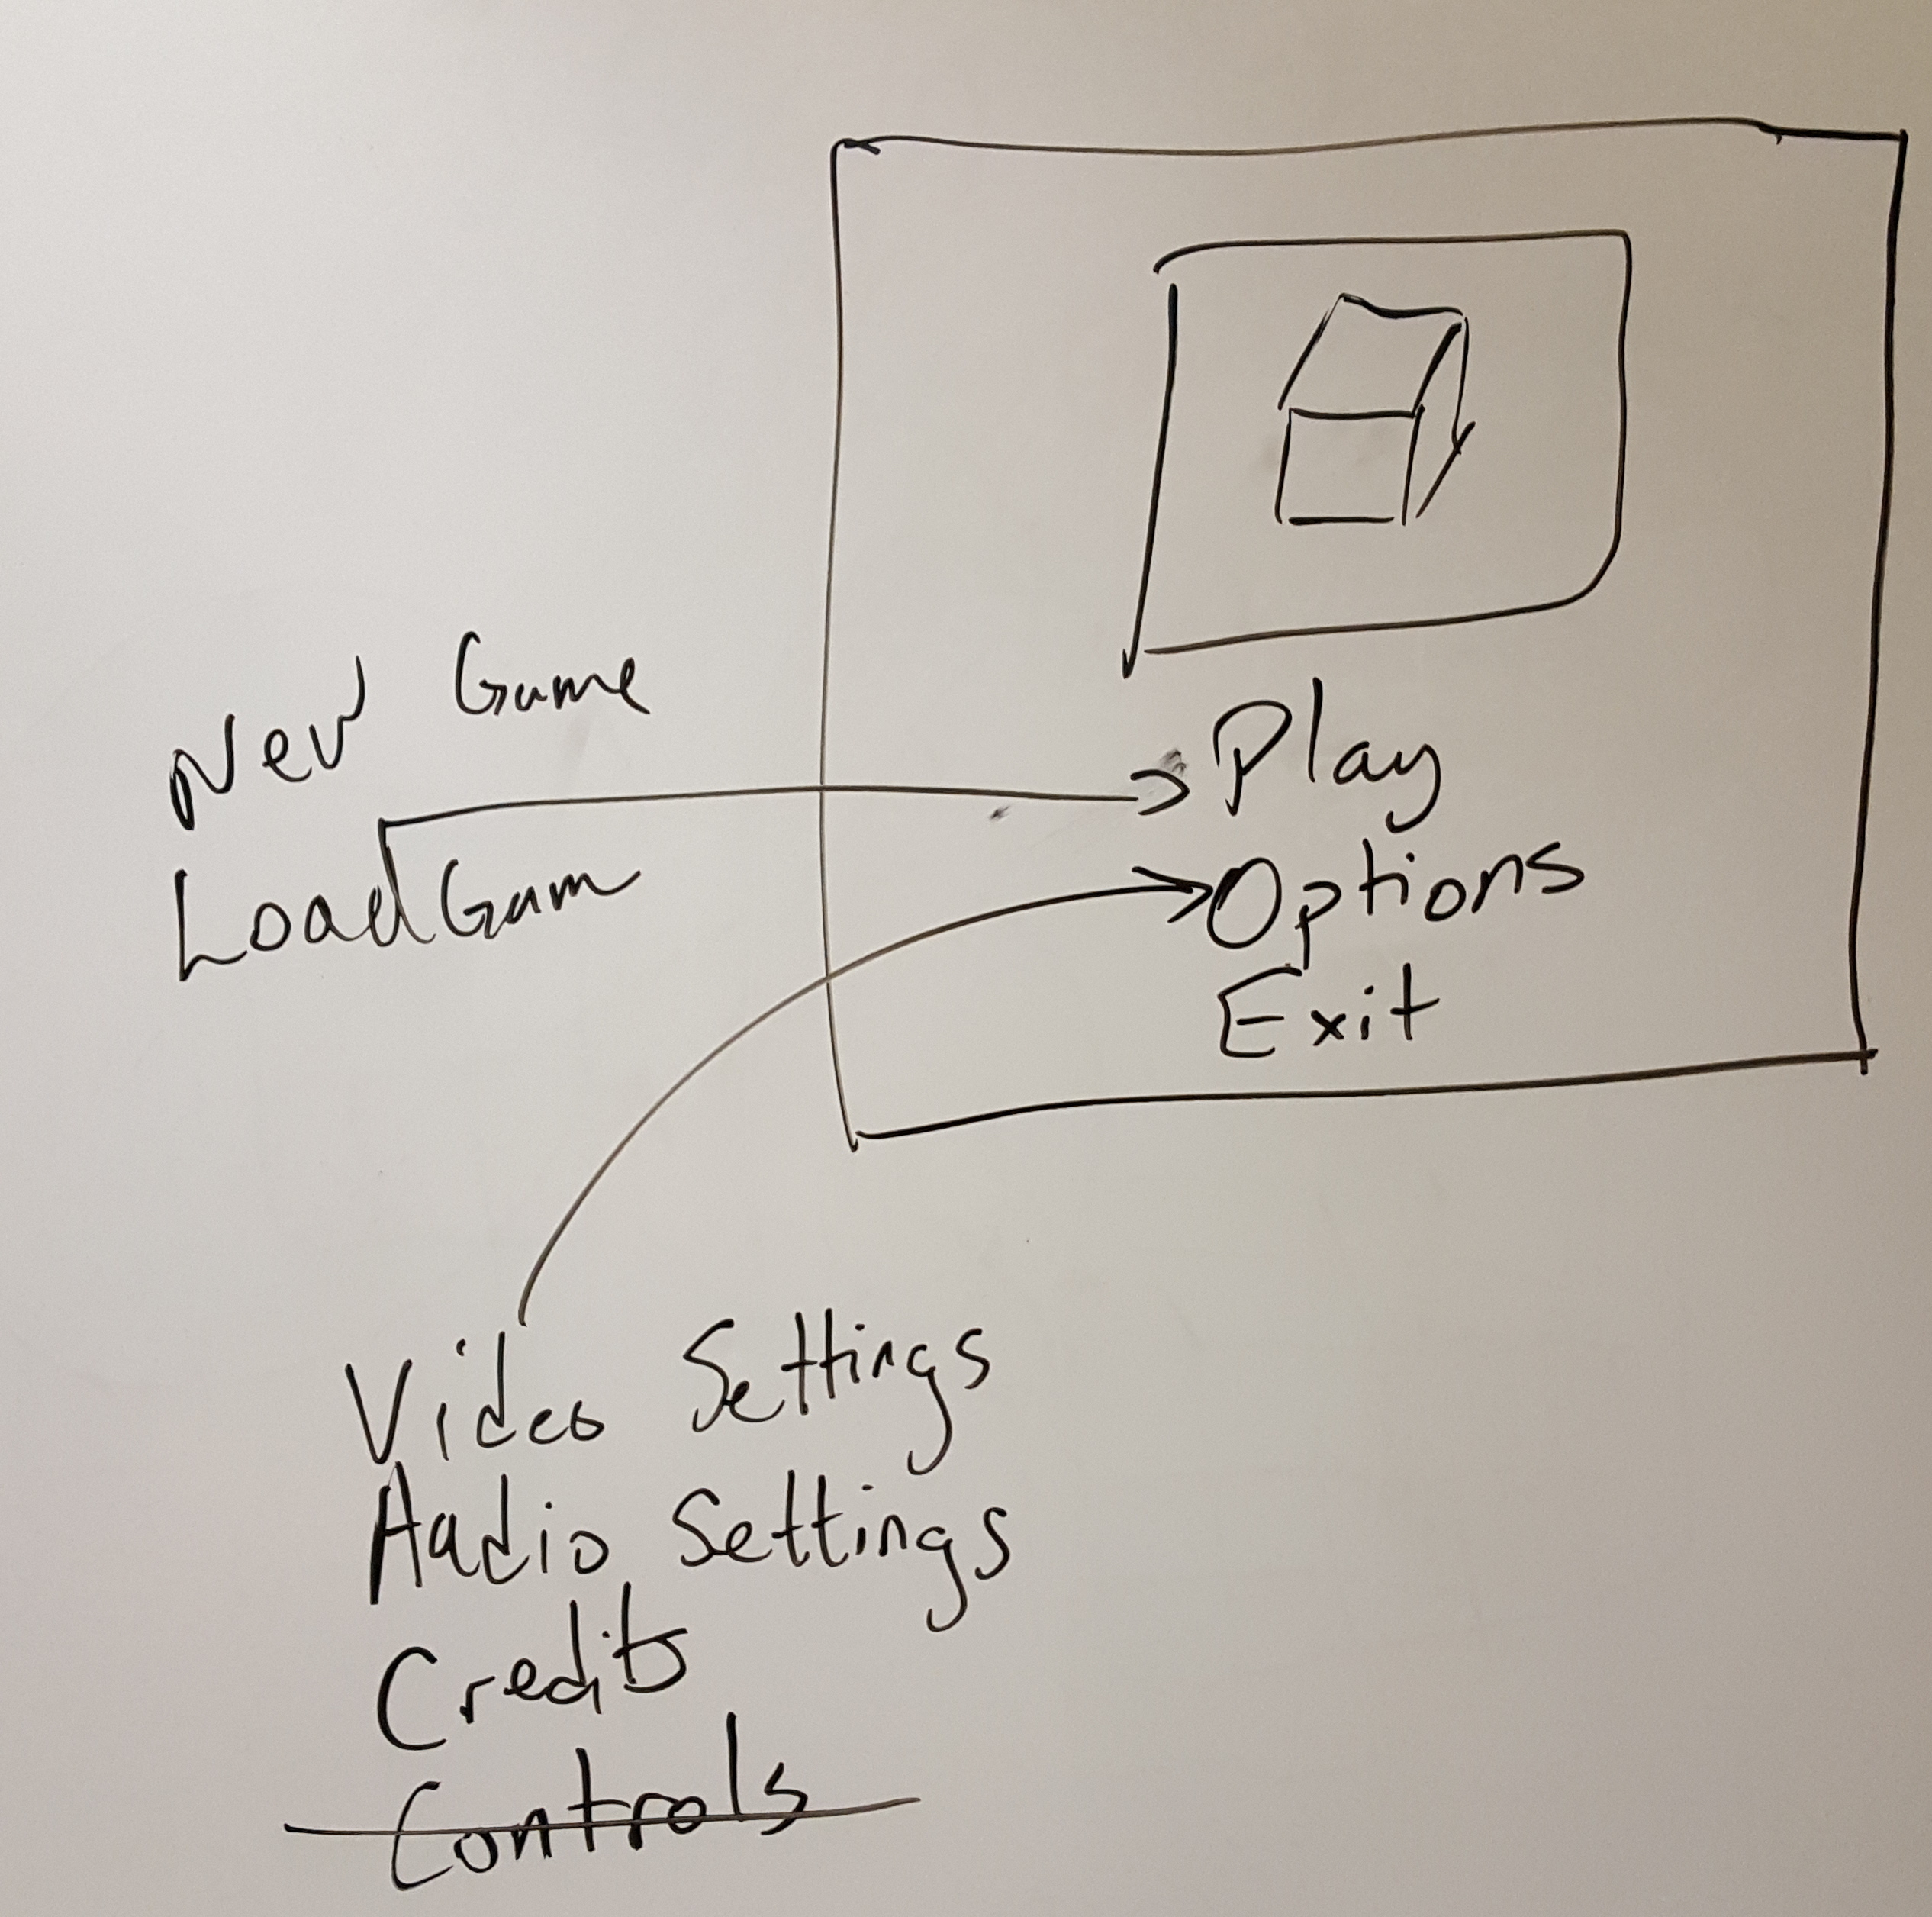 New Game
Load Gam
Play
Options
Exit
Video Settings
Audio Settings
Credits
Controls